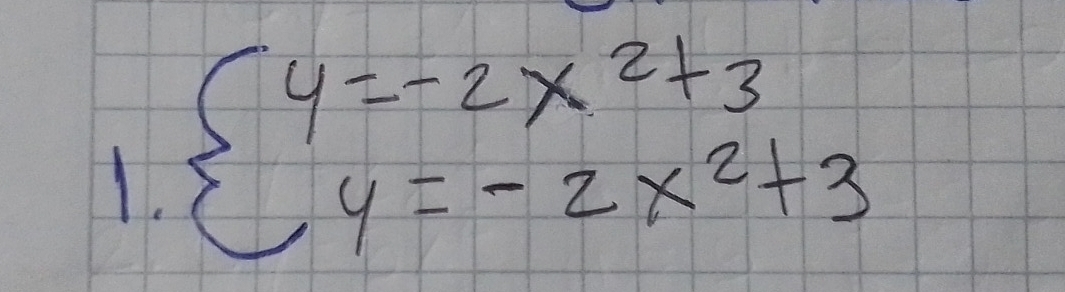 1. { y = -2x² + 3
y = -2x² + 3